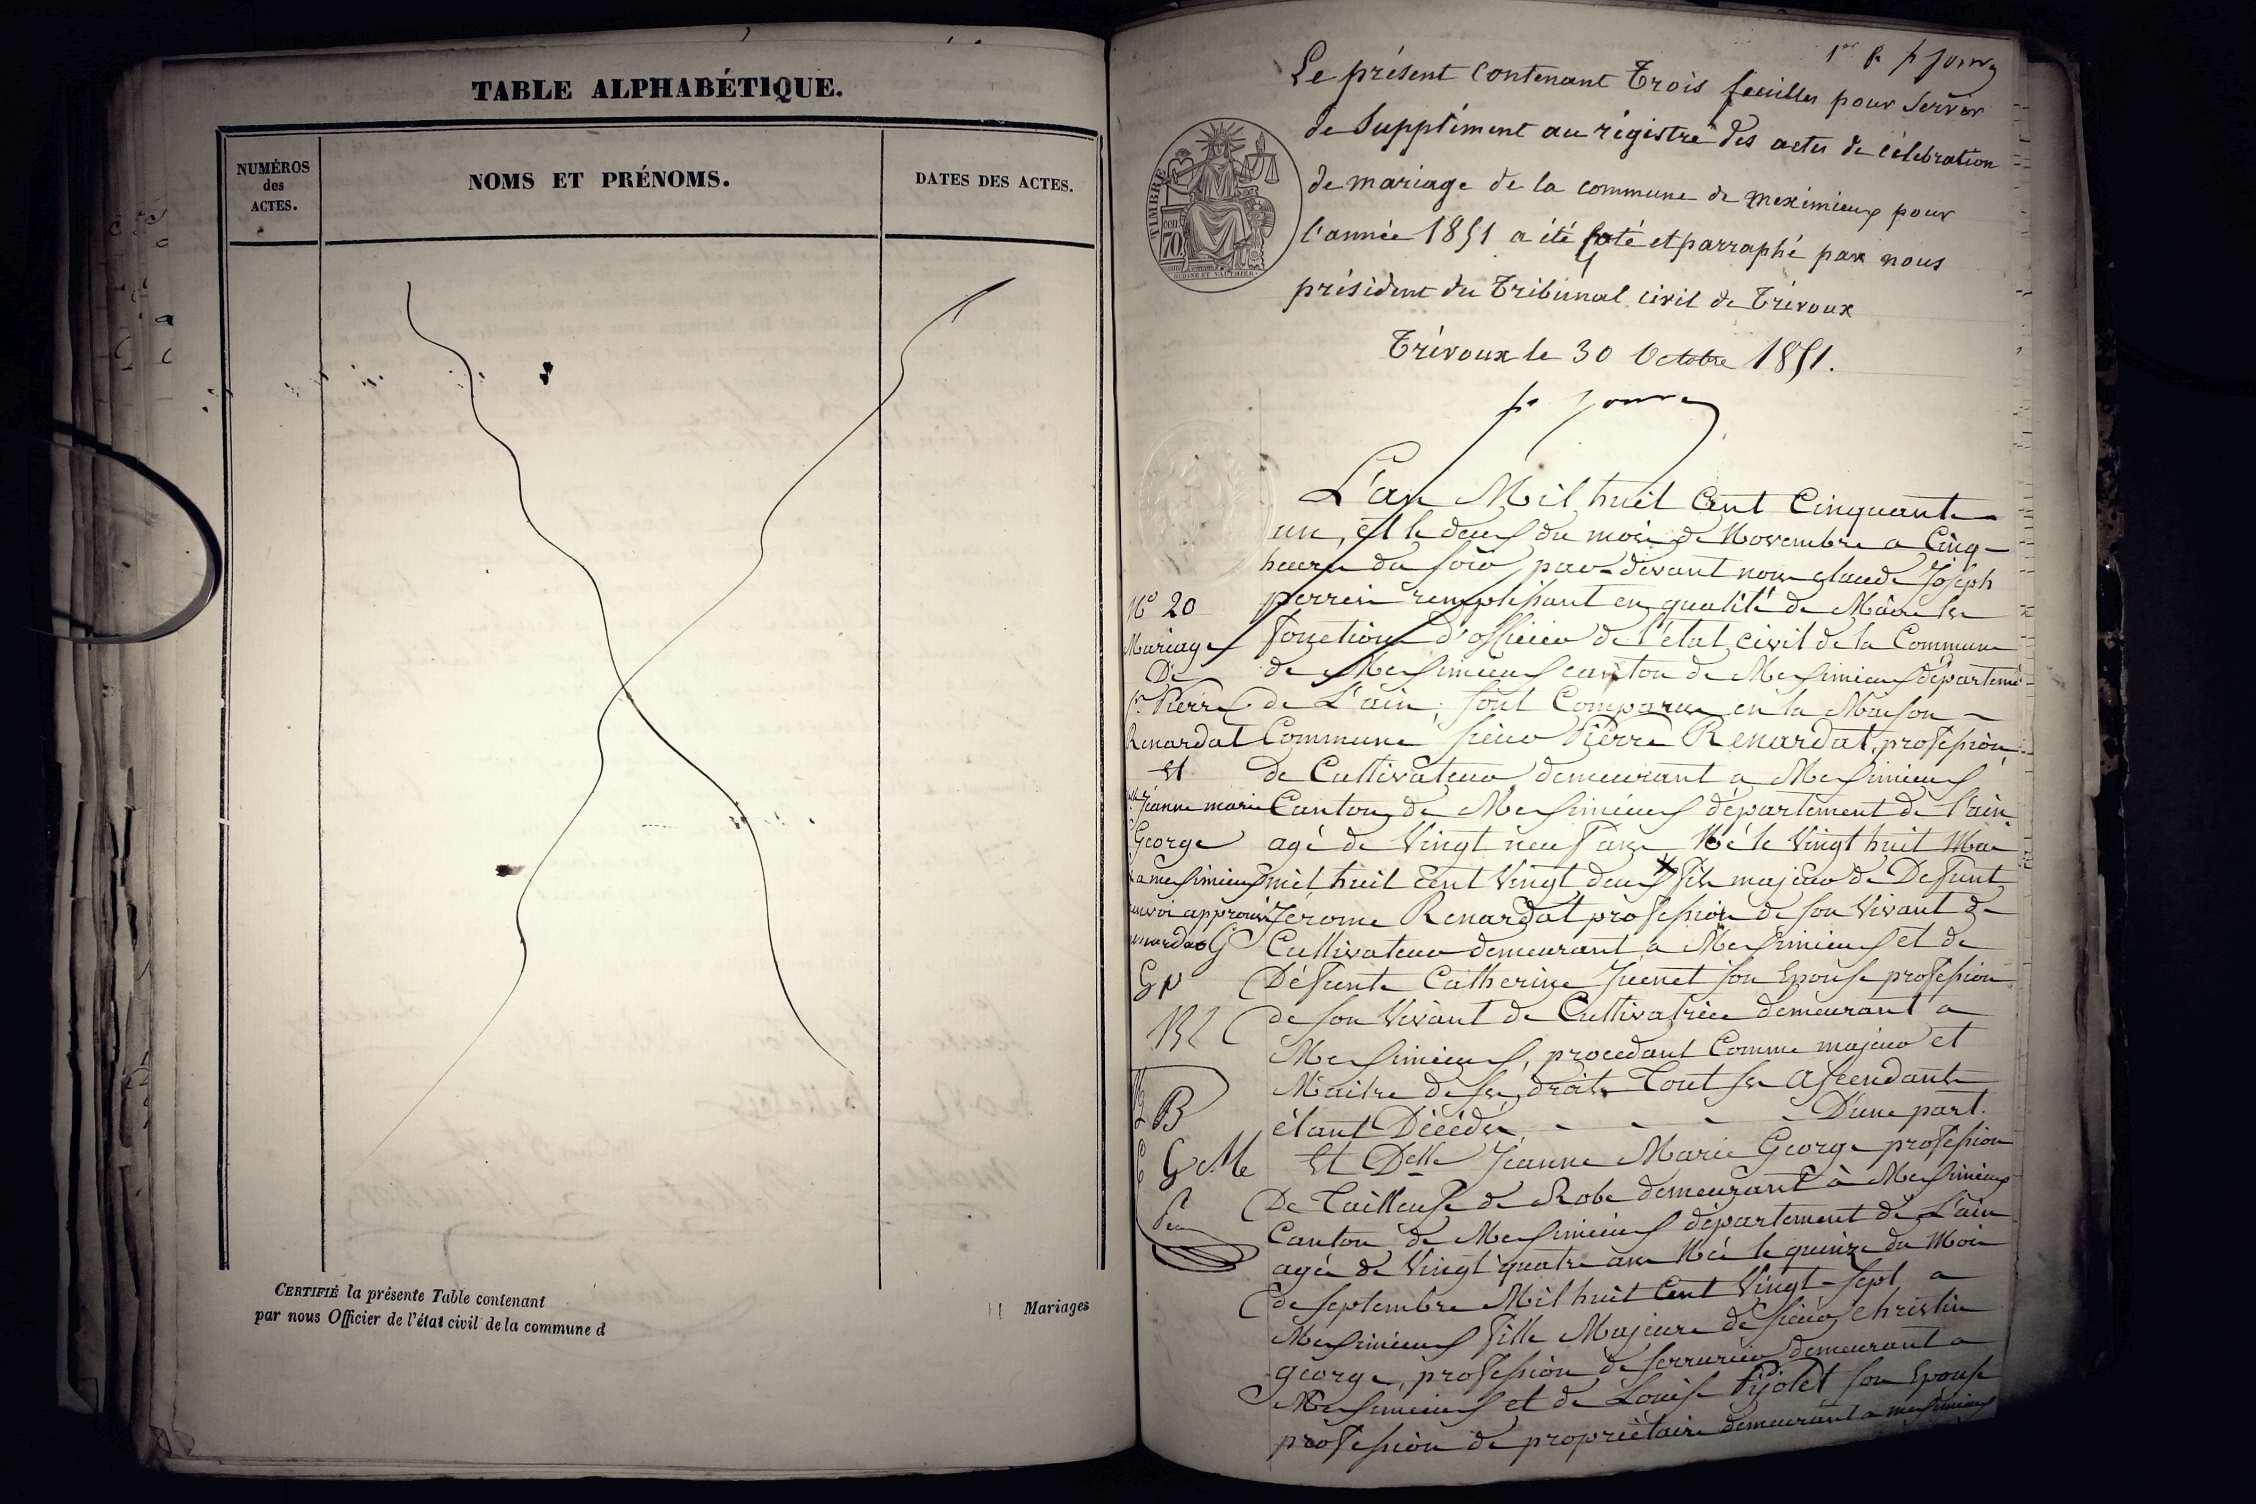 TABLE ALPHABÉTIQUE.
NUMÉROS
des
ACTES.
NOMS ET PRÉNOMS.
DATES DES ACTES.
CERTIFIÉ la présente Table contenant
Mariages
par nous Officier de l'état civil de la commune d
Le présent contenant Trois feuilles pour Servir
de Supplément au régistre des actes de célébration
de mariage de la commune de meximieux pour
l'année 1851 a été coté et parraphé par nous
président du Tribunal civil de Trévoux
Trévoux le 30 Octobre 1851.
TIMBRE
70
L'an Mil huit Cent Cinquante
un, et le deux du mois de Novembre a Cinq
heures du soir par-devant nous glaude Joseph
perrin remplissant en qualité de Maire les
fonctions d'officier de l'état civil de la Commune
de Messimieux canton de Messimieux départemt
de L'ain, sont Comparus en la Maison
Commune sieur Pierre Renardat, profession
de Cultivateur demeurant a Messimieux
Canton de Messimieux département de l'ain
agé de Vingt neuf ans Né le Vingt huit Mai
mil huit cent Vingt deux fils majeur de Défunt
Jérome Renardat profession de son Vivant de
Cultivateur demeurant a Messimieux et de
Défunte Catherine Juenet son Epouse profession
de son Vivant de Cultivatrice demeurant a
Messimieux, procédant Comme majeur et
Maitre de ses droits Tout ses Ascendants
étant Décédés - - - - D'une part.
Et Delle Jeanne Marie George profession
De Tailleuse de Robe demeurant à Messimieux
Canton de Messimieux département de L'ain
agée de Vingt quatre ans Née le quinze du Mois
de Septembre Mil huit Cent Vingt-Sept a
Messimieux fille Majeure de sieur Christin
george, profession de serrurier demeurant a
Messimieux et de Louise Pijolet son Epouse
profession de propriétaire demeurant a messimieux
No 20
Mariage
De
Sr Pierre
Renardat
Et
Jeanne marie
George
a messimieux
renvoi approuvé
G P
B
G Me